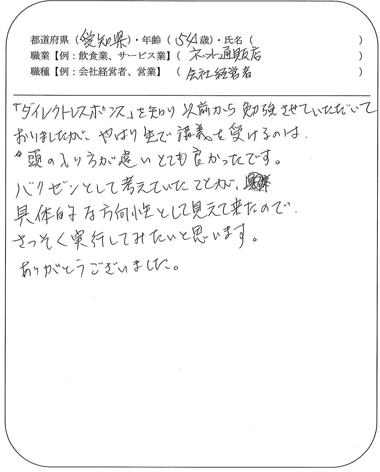 都道府県（愛知県）・年齢（54歳）・氏名（　　　　　）
職業【例：飲食業、サービス業】（ネット通販店　　　）
職種【例：会社経営者、営業】（会社経営者　　　）
「ダイレクトレスポンス」を知り以前から勉強させていただいて
おりましたが、やはり生で講義を受けるのは、
頭の入り方が違いとても良かったです。
バクゼンとして考えていたことが、
具体的な方向性として見えて来たので、
さっそく実行してみたいと思います。
ありがとうございました。